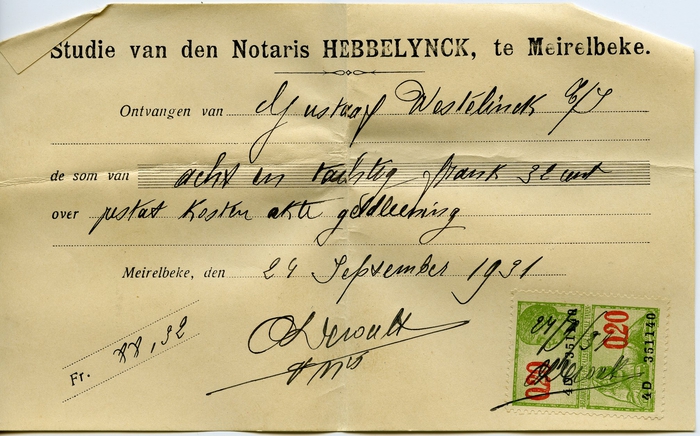 Studie van den Notaris HEBBELYNCK, te Meirelbeke.
Ontvangen van Gustaaf Westelinck
de som van acht en tachtig frank 32 cent
over restat kosten akte geldleening
Meirelbeke, den 24 September 1931
Fr. 88,32
0,20 0,20
4D 351140 4D 351140